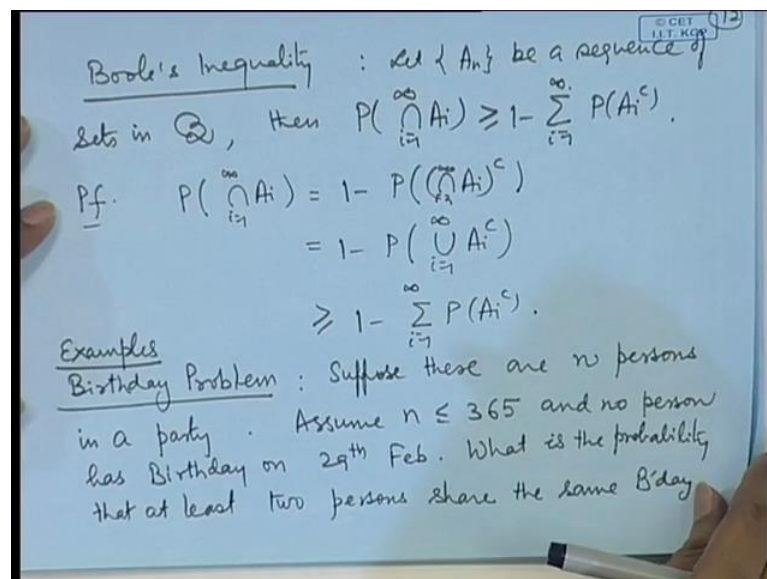 © CET
I.I.T. KGP
12
Boole's Inequality : Let { An} be a sequence of
sets in ℬ, then P( ∞⋂i=1 Ai) ≥ 1- ∞∑i=1 P(Aiᶜ).
Pf. P( ∞⋂i=1 Ai) = 1- P((⋂Ai)ᶜ)
= 1- P( ∞⋃i=1 Aiᶜ)
≥ 1- ∞∑i=1 P(Aiᶜ).
Examples
Birthday Problem : Suppose there are n persons
in a party . Assume n ≤ 365 and no person
has Birthday on 29th Feb. What is the probability
that at least two persons share the same B'day